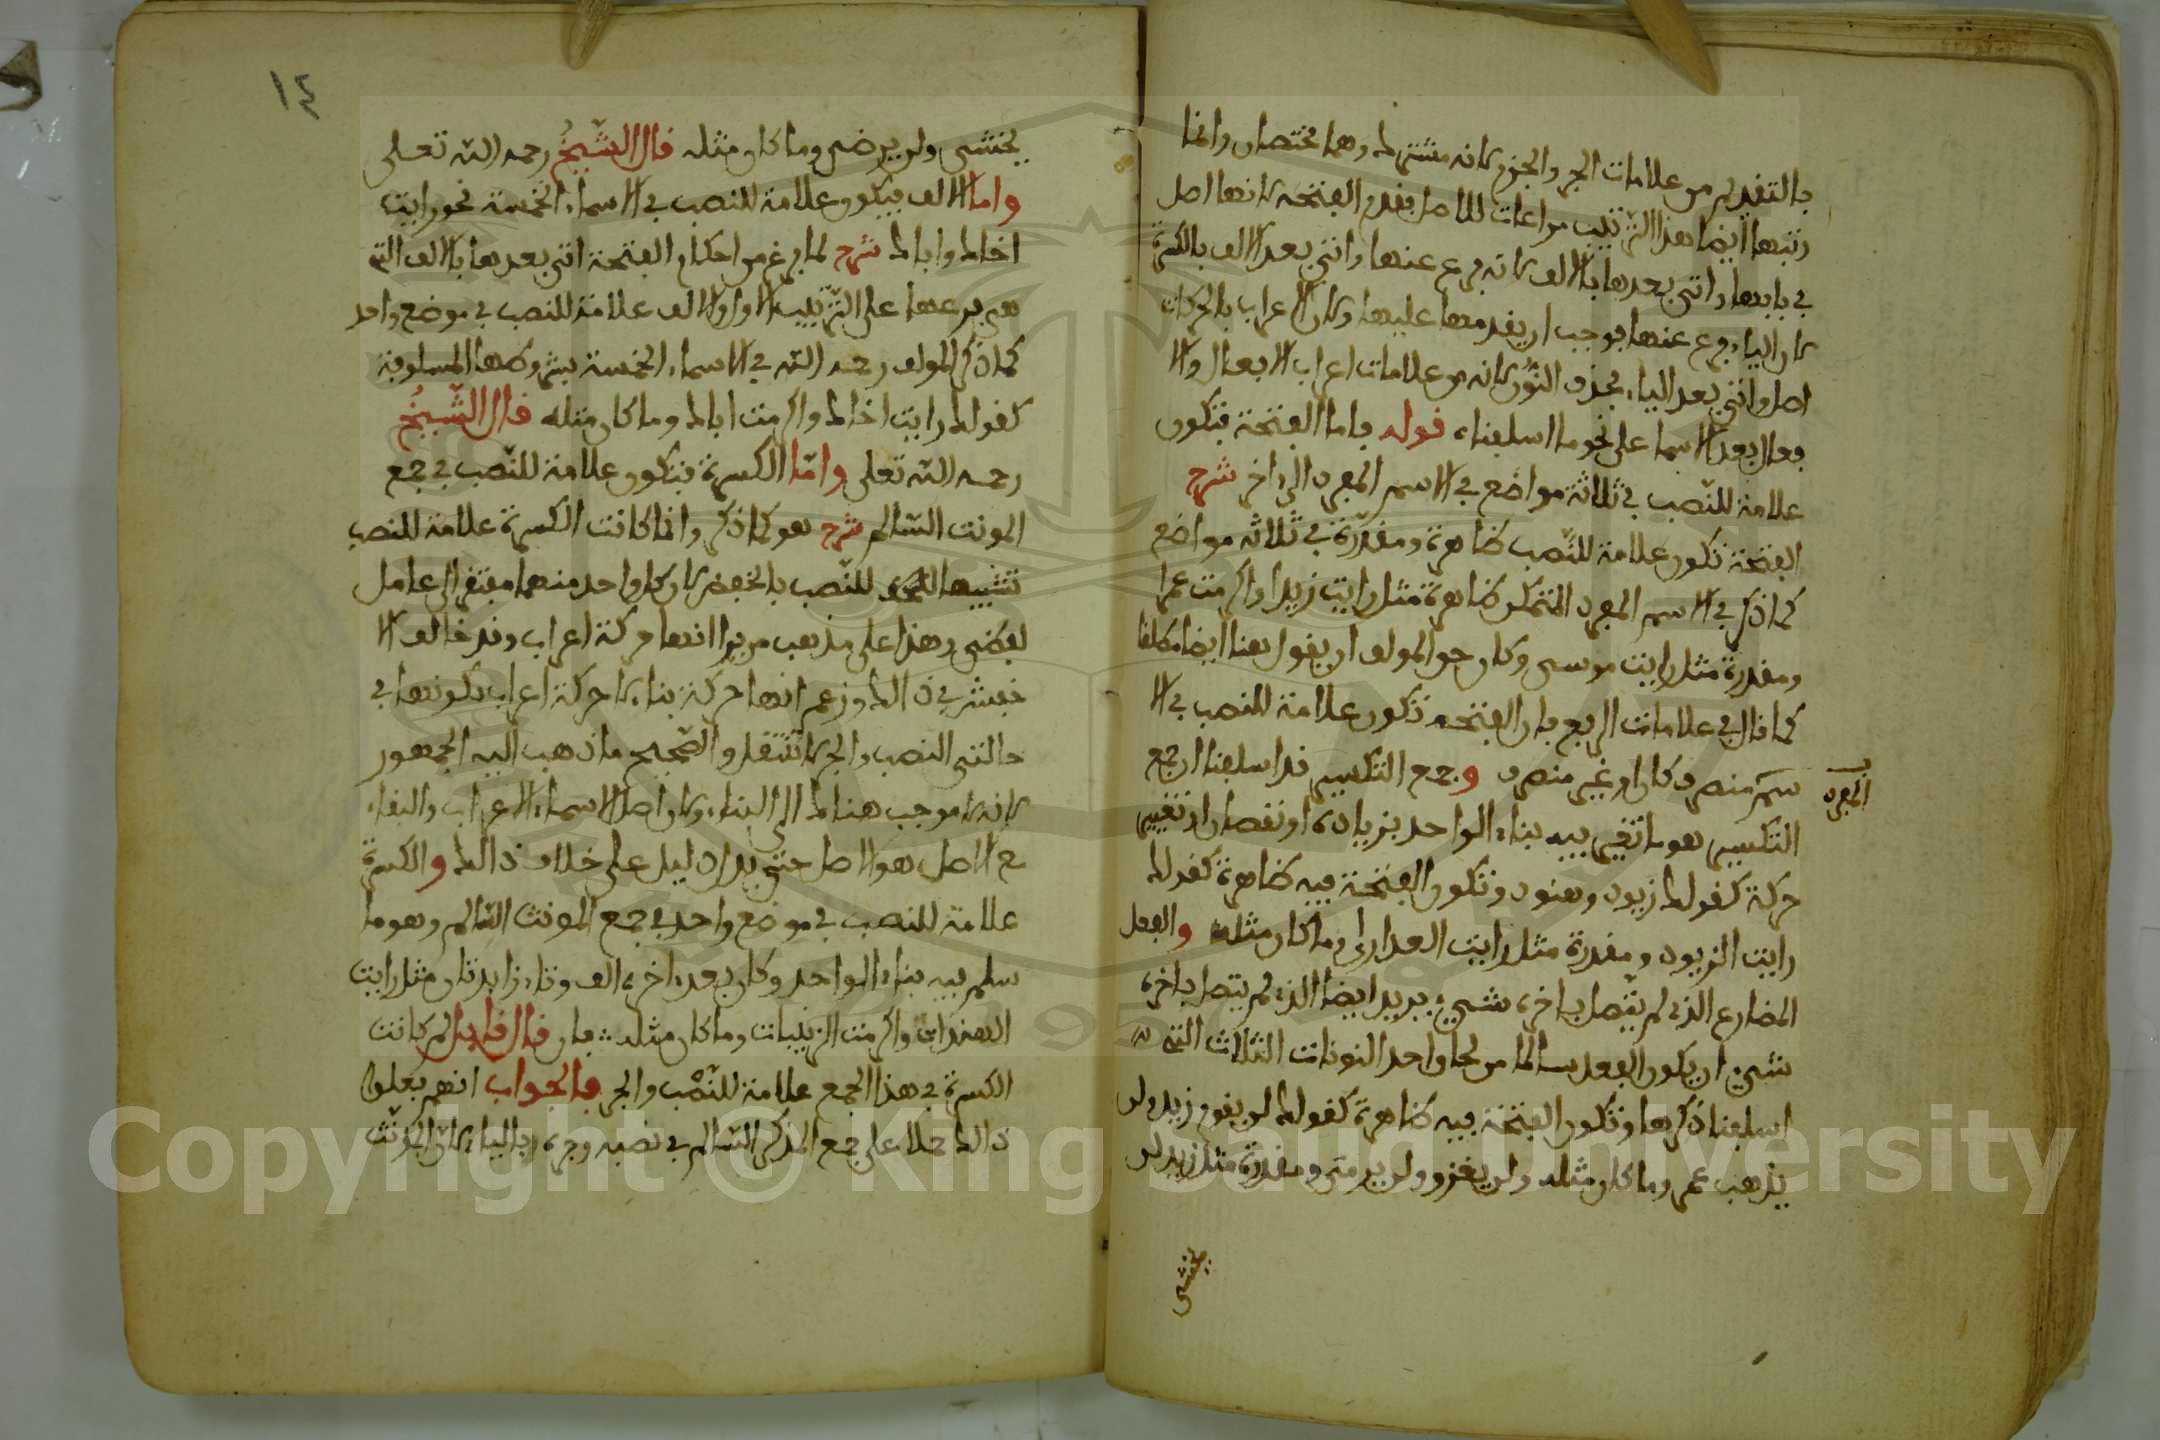 بالتقديم من علامات الجر والجزم لانه مشترك وهما مختصان وانما
رتبها ايضا هذا الترتيب مراعات للاصل فقدم الفتحة لانها اصل
في بابها واتى بعدها بالالف لانه فرع عنها واتى بعد الالف بالكسرة
لان الياء فرع عنها فوجب ان يقدمها عليها ولان الاعراب بالحركات
اصل واتى بعد الياء بحذف النون لانه من علامات اعراب الافعال والا
فعال بعد الاسما على نحو ما اسلفناه قوله فاما الفتحة فتكون
علامة للنصب في ثلاثة مواضع في الاسم المفرد الى اخر شرح
الفتحة تكون علامة للنصب ظاهرة ومقدرة في ثلاثة مواضع
كما ذكر في الاسم المفرد المتمكن ظاهرة مثل رايت زيدا واكرمت عمرا
ومقدرة مثل رايت موسى وكان حق المولف ان يقول هنا ايضا مطلقا
كما قال في علامات الرفع فان الفتحة تكون علامة للنصب في الا
سم منصرف كان او غير منصرف وجمع التكسير قد اسلفنا ان جمع
المفرد
التكسير هو ما تغير فيه بناء الواحد بزيادة او نقصان او تغيير
حركة كقولك زيود وهنود وتكون الفتحة فيه ظاهرة كقولك
رايت الزيود ومقدرة مثل رايت العذارى وما كان مثله والفعل
المضارع الذي لم يتصل باخره شيء يريد ايضا الذي لم يتصل باخره
شيء ان يكون الفعل سالما من لحاق احد النونات الثلاث التي
اسلفنا ذكرها وتكون الفتحة فيه ظاهرة كقولك لن يقوم زيد ولن
يذهب عمر وما كان مثله ولن يغزو ولن يرمي ومقدرة مثل زيد لن
يخشى
١٤
يخشى ولن يرضى وما كان مثله قال الشيخ رحمه الله تعلى
واما الالف فيكون علامة للنصب في الاسماء الخمسة نحو رايت
اخاك واباك شرح لما فرغ من احكام الفتحة اتى بعدها بالالف التي
هي فرعها على الترتيب الاول والالف علامة للنصب في موضع واحد
كما ذكر المولف رحمه الله في الاسماء الخمسة بشروطها المسلوفة
كقولك رايت اخاك واكرمت اباك وما كان مثله قال الشيخ
رحمه الله تعلى واما الكسرة فتكون علامة للنصب في جمع
المونث السالم شرح هو كما ذكر وانما كانت الكسرة علامة للنصب
تشبيها للنصب بالخفض لان كل واحد منهما مفتقر الى عامل
لفظي وهذا على مذهب من يرا انها حركة اعراب وقد خالف الا
خفش في ذالك وزعم انها حركة بناء لا حركة اعراب لكونها في
حالتي النصب والجر لا تنتقل والصحيح ما ذهب اليه الجمهور
لانه لا موجب هنالك الى البناء ولان اصل الاسماء الاعراب والبقاء
مع الاصل هو الاصل حتى يدل دليل على خلاف ذالك والكسرة
علامة للنصب في موضع واحد في جمع المونث السالم وهو ما
سلم فيه بناء الواحد وكان بعد اخره الف وتاء زايدتان مثل رايت
الهندات واكرمت الزينبات وما كان مثله فان قال قايل لم كانت
الكسرة في هذا الجمع علامة للنصب والجر فالجواب انهم فعلوا
ذالك حملا على جمع المذكر السالم في نصبه وجره بالياء لان المونث
Copyright © King Saud University